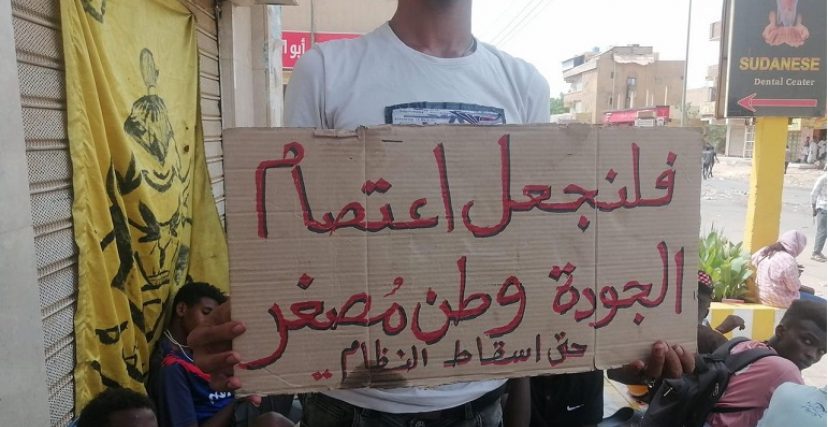 فلنجعل اعتصام
الجودة وطن مُصغر
حتى اسقاط النظام
أبو ا
SUDANESE
Dental Center